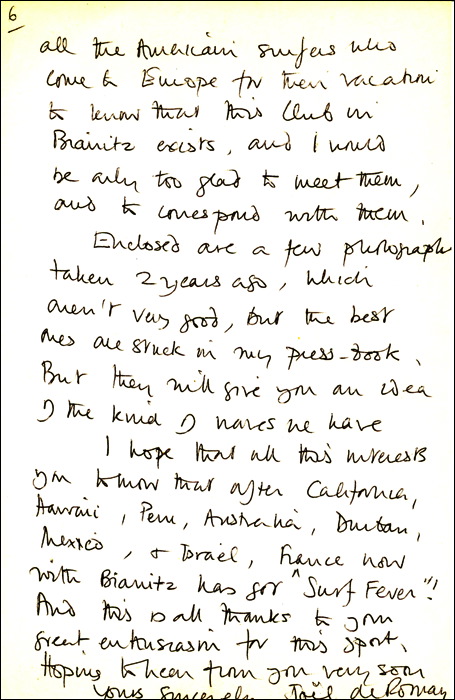 6
all the American surfers who
come to Europe for their vacation
to know that this Club in
Biarritz exists, and I would
be only too glad to meet them,
and to correspond with them.
Enclosed are a few photograph
taken 2 years ago, which
aren't very good, but the best
ones are stuck in my press-book.
But they will give you an idea
of the kind of waves we have
I hope that all this interests
you to know that after California,
Hawaii, Peru, Australia, Durban,
Mexico, & Israel, France now
with Biarritz has got "Surf Fever"!
And this is all thanks to your
great enthusiasm for this sport.
Hoping to hear from you very soon
Yours sincerely Joël de Rosnay